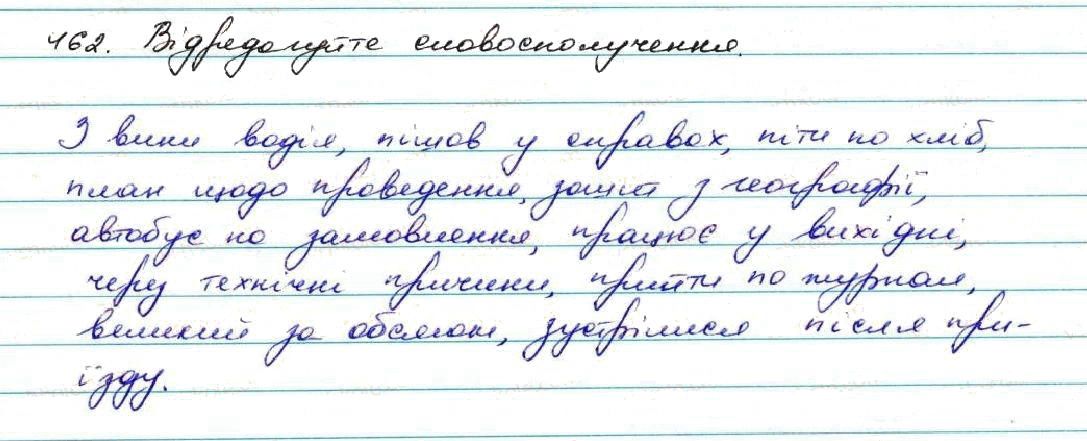 462. Відредагуйте словосполучення.
З вини водія, пішов у справах, піти по хліб,
план щодо проведення, зошит з географії,
автобус на замовлення, працює у вихідні,
через технічні причини, прийти по журнал,
великий за обсягом, зустрілися після при-
їзду.